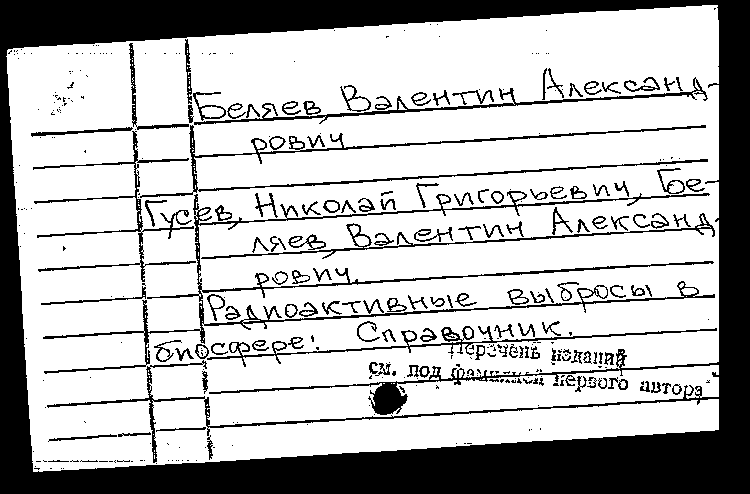 Беляев, Валентин Александ-
рович
Гусев, Николай Григорьевич, Бе-
ляев, Валентин Александ-
рович.
Радиоактивные выбросы в
биосфере: Справочник.
Перечень изданий
см. под фамилией первого автора